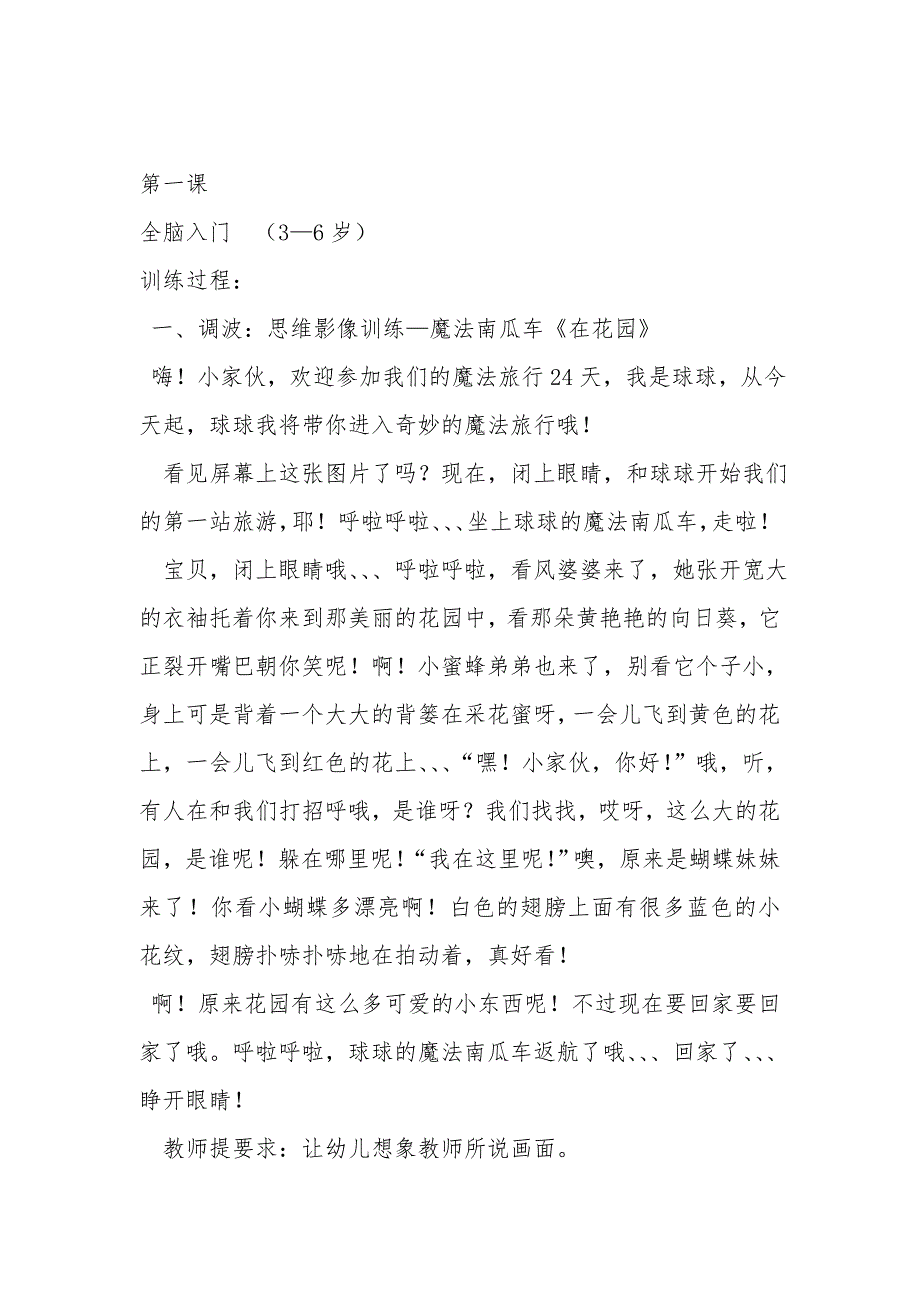 第一课
全脑入门　（3—6 岁）
训练过程：
一、调波：思维影像训练—魔法南瓜车《在花园》
嗨！小家伙，欢迎参加我们的魔法旅行 24 天，我是球球，从今
天起，球球我将带你进入奇妙的魔法旅行哦！
看见屏幕上这张图片了吗？现在，闭上眼睛，和球球开始我们
的第一站旅游，耶！呼啦呼啦、、、坐上球球的魔法南瓜车，走啦！
宝贝，闭上眼睛哦、、、呼啦呼啦，看风婆婆来了，她张开宽大
的衣袖托着你来到那美丽的花园中，看那朵黄艳艳的向日葵，它
正裂开嘴巴朝你笑呢！啊！小蜜蜂弟弟也来了，别看它个子小，
身上可是背着一个大大的背篓在采花蜜呀，一会儿飞到黄色的花
上，一会儿飞到红色的花上、、、“嘿！小家伙，你好！”哦，听，
有人在和我们打招呼哦，是谁呀？我们找找，哎呀，这么大的花
园，是谁呢！躲在哪里呢！“我在这里呢！”噢，原来是蝴蝶妹妹
来了！你看小蝴蝶多漂亮啊！白色的翅膀上面有很多蓝色的小
花纹，翅膀扑哧扑哧地在拍动着，真好看！
啊！原来花园有这么多可爱的小东西呢！不过现在要回家要回
家了哦。呼啦呼啦，球球的魔法南瓜车返航了哦、、、回家了、、、
睁开眼睛！
教师提要求：让幼儿想象教师所说画面。